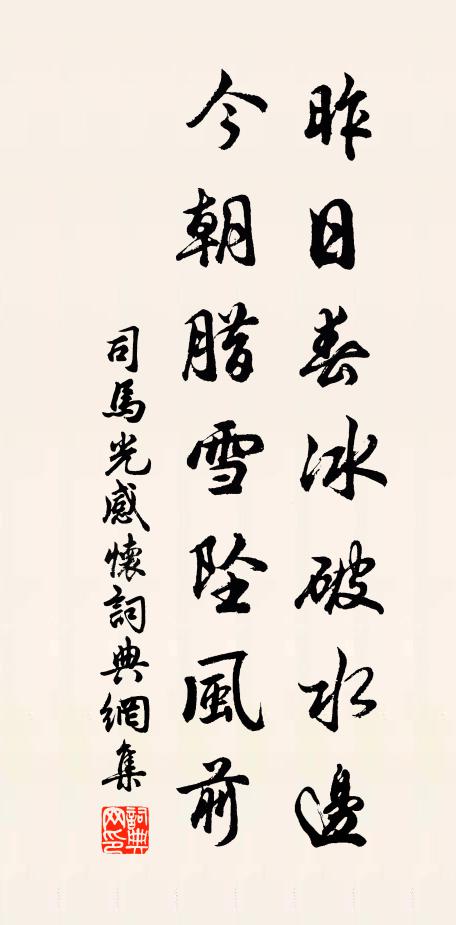 昨日春冰破水邊
今朝腊雪坠風前
司馬光感懷詞典網集
詞典網印